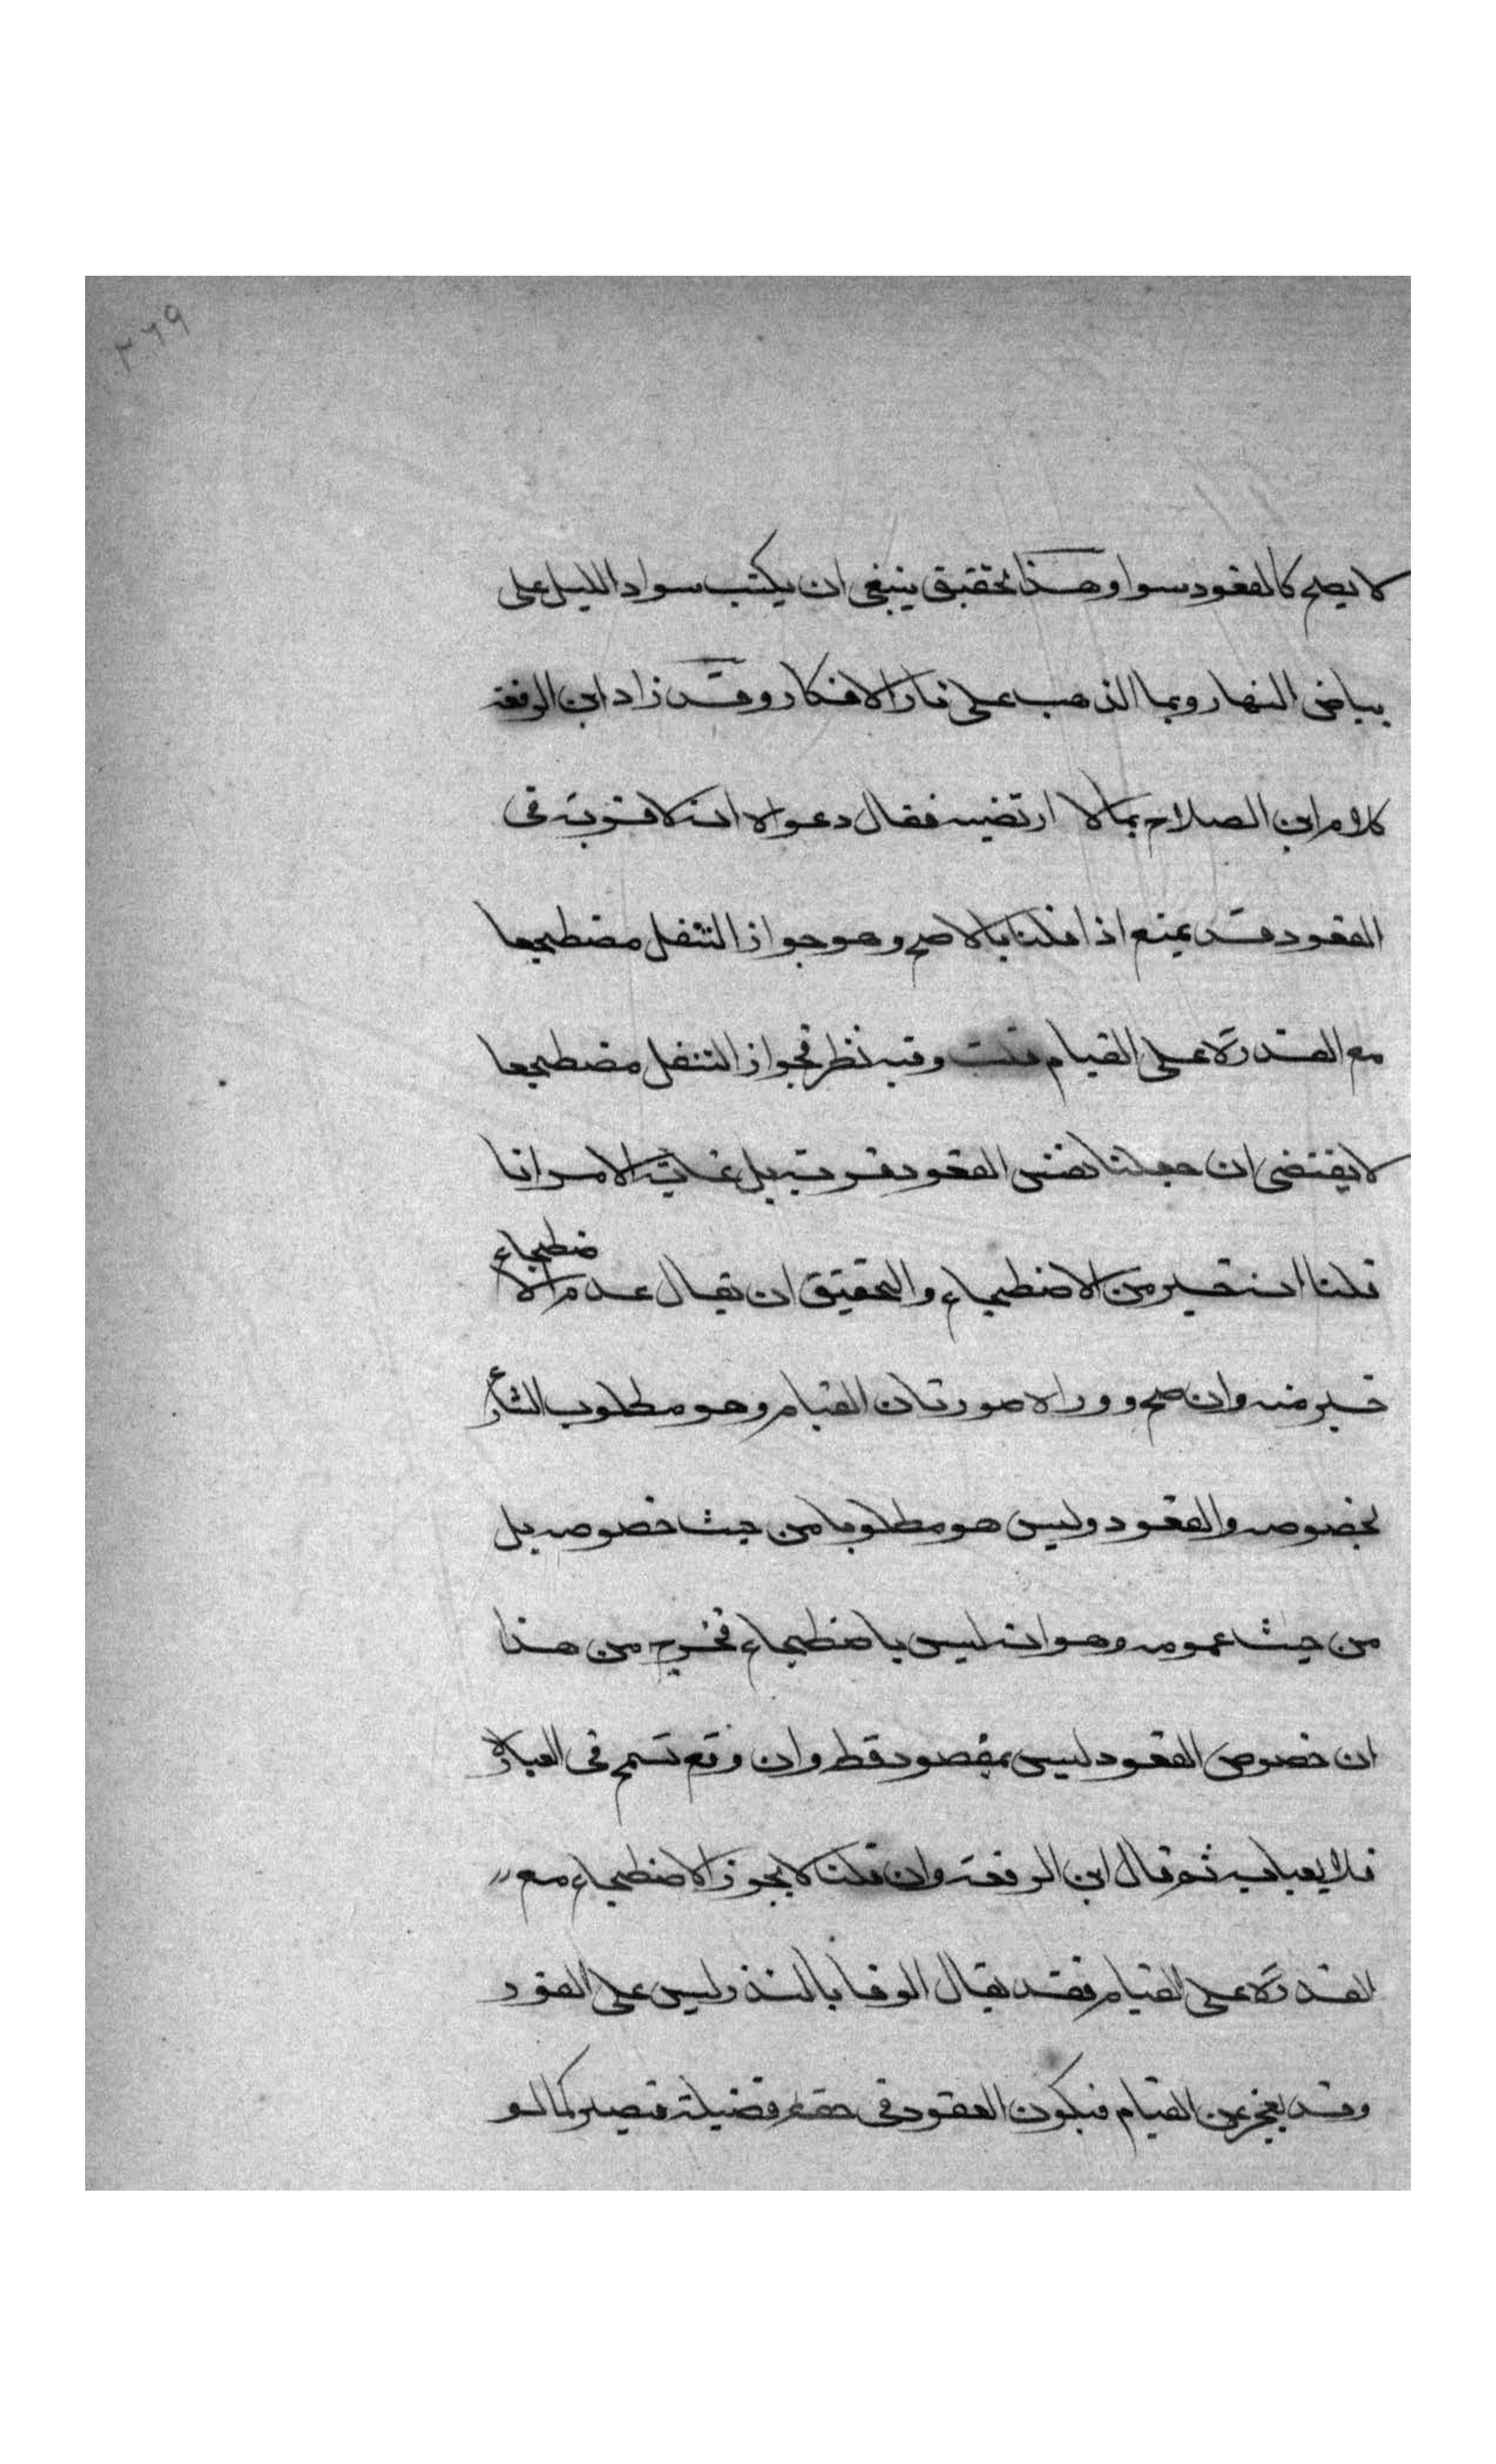 ٣٦٩
لا يصح كالقعود سوا وهذا تحقيق ينبغي ان يكتب سواد الليل على
بياض النهار وبما الذهب على نار الافكار وقد زاد ابن الرفعة
كلام ابن الصلاح بما لا ارتضيه فقال دعواه انه لا قربة في
القعود قد يمنع اذا قلنا بالاصح وهو جواز التنفل مضطجعا
مع القدرة على القيام قلت وفيه نظر فجواز التنفل مضطجعا
لا يقتضي ان جعلنا نفس القعود قربة بل غاية الامر انا
قلنا انه خير من الاضطجاع والتحقيق ان يقال عدم الاضطجاع
خير منه وان صح ووراه صورتان القيام وهو مطلوب الشارع
بخصوصه والقعود وليس هو مطلوبا من حيث خصوصه بل
من حيث عمومه وهو انه ليس باضطجاع فخرج من هذا
ان خصوص القعود ليس بمقصود قط وان وقع تسمح في العبارة
فلا يعبا به ثم قال ابن الرفعة وان قلنا لا يجوز الاضطجاع مع
القدرة على القيام فقد يقال الوفا بالنذر وليس على الفور
وقد يعجز عن القيام فيكون القعود في حقه فضيلة فيصير كما لو